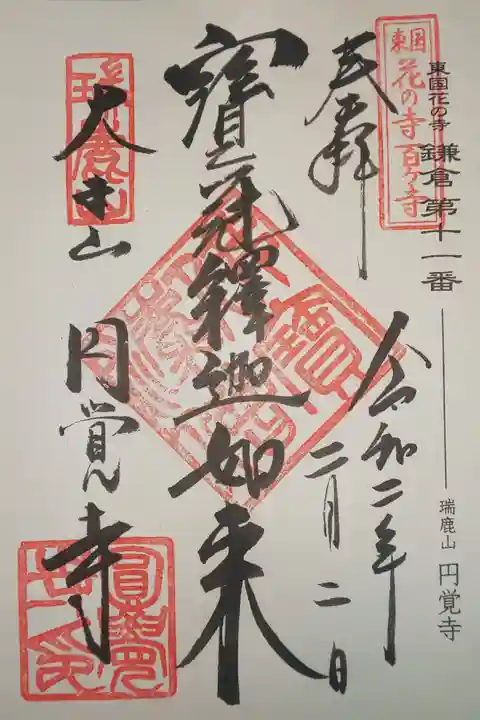 東国花の寺 鎌倉第十一番 瑞鹿山 円覚寺
東国
花の寺 百ヶ寺
奉拝
令和二年
二月二日
寳冠釋迦如来
瑞鹿山
大本山 円覚寺